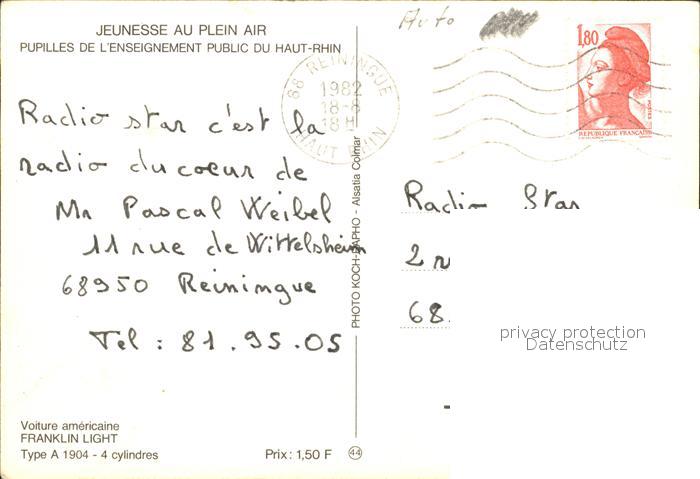 JEUNESSE AU PLEIN AIR
PUPILLES DE L'ENSEIGNEMENT PUBLIC DU HAUT-RHIN
Auto
1,80
POSTES
REPUBLIQUE FRANÇAISE
68 REININGUE
1982
18-8
18H
HAUT RHIN
Radio star c'est la
radio du coeur de
Mr Pascal Weibel
11 rue de Wittelsheim
68950 Reiningue
Tel : 81.95.05
PHOTO KOCH-RAPHO - Alsatia Colmar
Radio Star
2
68.
privacy protection
Datenschutz
Voiture américaine
FRANKLIN LIGHT
Type A 1904 - 4 cylindres
Prix : 1,50 F
44